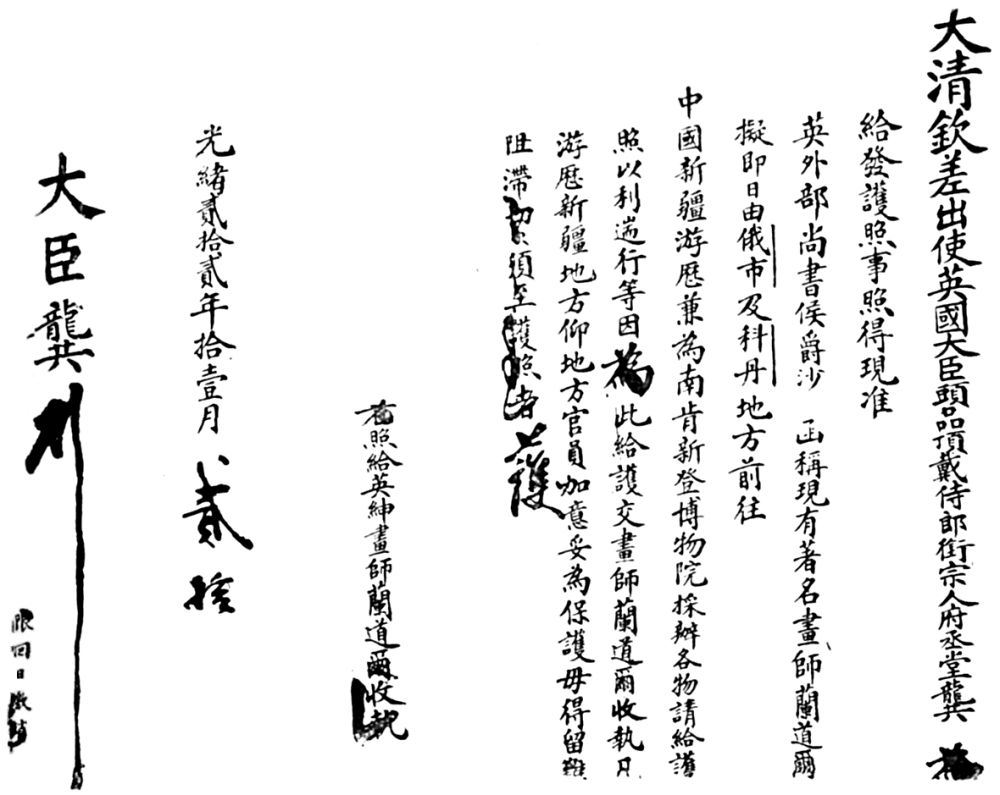 大清欽差出使英國大臣頭品頂戴侍郎銜宗人府丞堂龔
給發護照事照得現准
英外部尚書侯爵沙 函稱現有著名畫師蘭道爾
擬即日由俄市及科丹地方前往
中國新疆游歷兼為南肯新登博物院採辦各物請給護
照以利遄行等因為此給護交畫師蘭道爾收執凡
游歷新疆地方仰地方官員加意妥為保護毋得留難
阻滯切須至護照者
護
右照給英紳畫師蘭道爾收執
光緒貳拾貳年拾壹月 貳拾
大臣龔
限回日繳